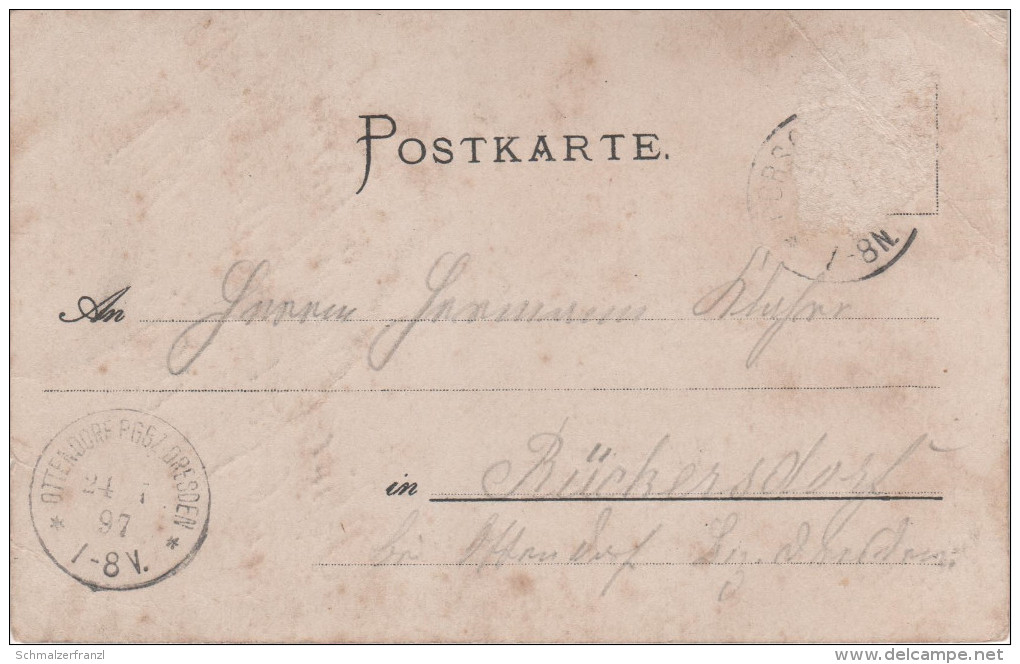 POSTKARTE.
7-8N.
An Herrn Hermann
OTTENDORF DRESDEN
97
7-8 V.
in Rückersdorf
bei Ottendorf Bz. Dresden
Schmalzerfranzl
www.delcampe.net